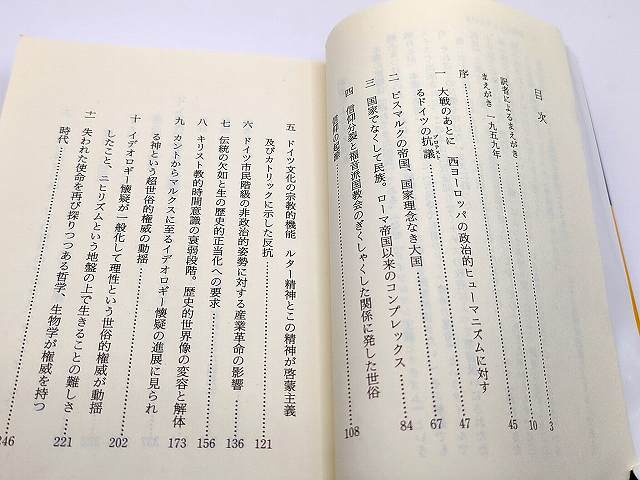 目次
訳者によるまえがき……3
まえがき 一九五九年……10
序……45
一 大戦のあとに 西ヨーロッパの政治的ヒューマニズムに対す
るドイツの抗議……47
プロテスト
二 ビスマルクの帝国、国家理念なき大国……67
三 国家でなくして民族。ローマ帝国以来のコンプレックス……84
四 信仰分裂と福音派国教会のぎくしゃくした関係に発した世俗
信仰の起源……108
五 ドイツ文化の宗教的機能 ルター精神とこの精神が啓蒙主義
及びカトリックに示した反抗……121
六 ドイツ市民階級の非政治的姿勢に対する産業革命の影響……136
七 伝統の欠如と生の歴史的正当化への要求……156
八 キリスト教的時間意識の衰弱段階。歴史的世界像の変容と解体……173
九 カントからマルクスに至るイデオロギー懐疑の進展に見られ
る神という超世俗的権威の動揺……202
十 イデオロギー懐疑が一般化して理性という世俗的権威が動揺
したこと、ニヒリズムという地盤の上で生きることの難しさ……221
十一 失われた使命を再び探りつつある哲学、生物学が権威を持つ
時代……246